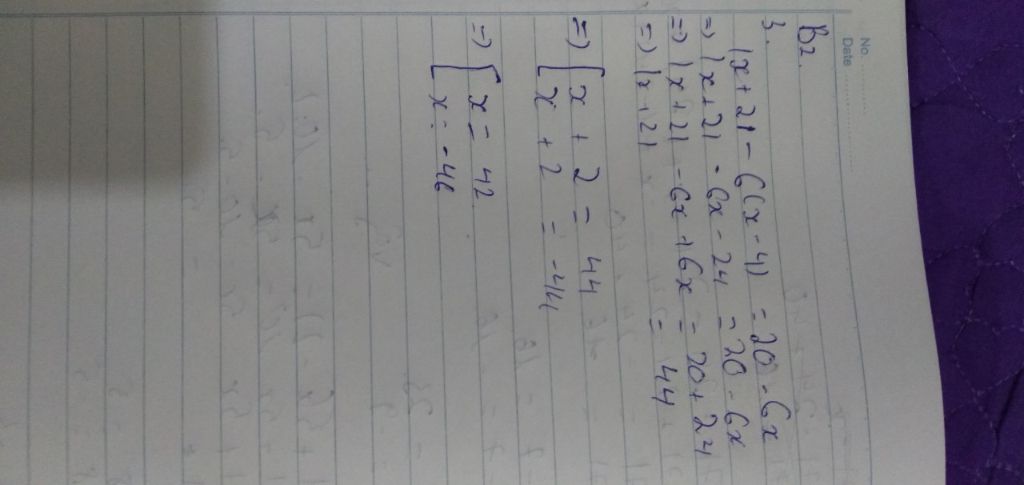 No.
Date
B2.
3.
|x+2| - 6(x-4) = 20 - 6x
=> |x+2| - 6x - 24 = 20 - 6x
=> |x+2| - 6x + 6x = 20 + 24
=> |x+2| = 44
=> [ x + 2 = 44
[ x + 2 = -44
=> [ x = 42
[ x = -46